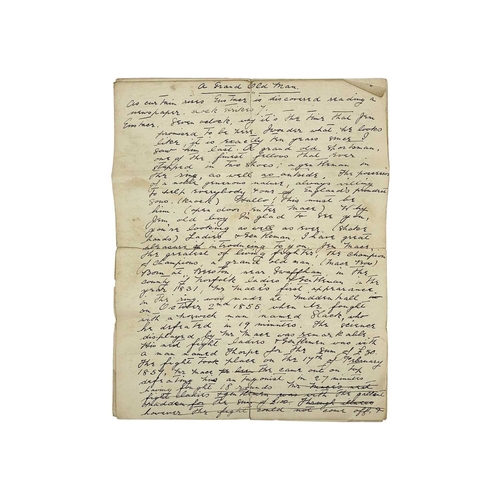 A Grand Old Man.
As curtain rises Eustace is discovered reading a
newspaper. clock strikes 7.
Eustace. Seven o'clock, why it's the time that Jem
promised to be here. I wonder what he looks
like, it is exactly ten years since I
saw him last. A grand old sportsman,
one of the finest fellows that ever
stepped in two shoes; a gentleman in
the ring, as well as outside. The possessor
of a noble generous nature, always willing
to help everybody & one of England's
sons. (Knock) Hullo! This must be
him. (opens door enter Mace) Why
Jem old boy I'm glad to see you,
you're looking as well as ever. (Shake
hands) Ladies & Gentlemen I have great
pleasure in introducing to you, Jem Mace,
the greatest of living fighters, the champion
of champions, a grand old man. (Mace Bows)
Born at Beeston near Swaffham, in the
county of Norfolk ladies & Gentlemen in the
year 1831, Mr Mace's first appearance
in the ring was made at Mildenhall
on October 2nd 1855 when he fought
with a Norwich man named Slack, who
he defeated in 19 minutes. The science
displayed by Mr Mace was remarkable.
His next fight ladies & Gentlemen was with
a man named Thorpe for the sum of £50.
The fight took place on the 17th of February
1857, Mr Mace came out on top
defeating his opponent in 27 minutes
having fought 18 rounds. Mr Mace's next
fight ladies & gentlemen was with the gallant
for the sum of
however the fight could not come off &